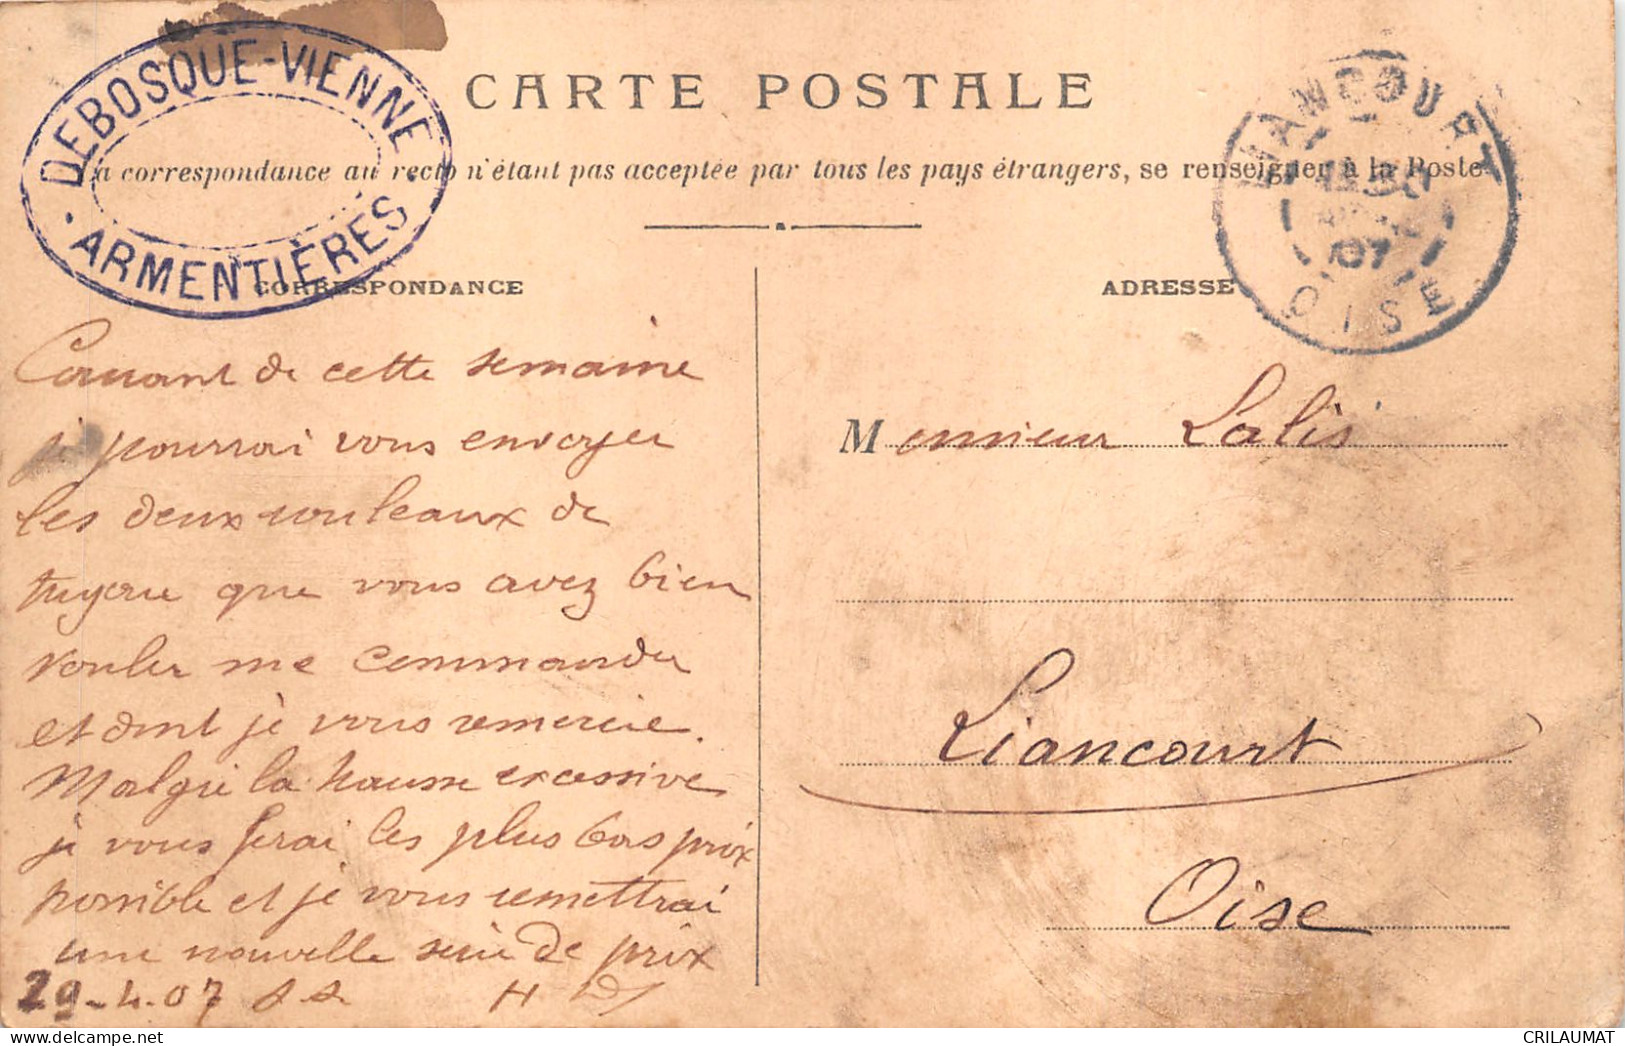 DEBOSQUE-VIENNE
ARMENTIÈRES
CARTE POSTALE
La correspondance au recto n'étant pas acceptée par tous les pays étrangers, se renseigner à la Poste
LIANCOURT
07
OISE
CORRESPONDANCE
ADRESSE
Courant de cette semaine
je pourrai vous envoyer
les deux rouleaux de
tuyau que vous avez bien
vouler me commander
et dont je vous remercie.
Malgré la hausse excessive
je vous ferai les plus bas prix
possible et je vous remettrai
une nouvelle série de prix
29-4.07
Monsieur Lalis
Liancourt
Oise
CRILAUMAT